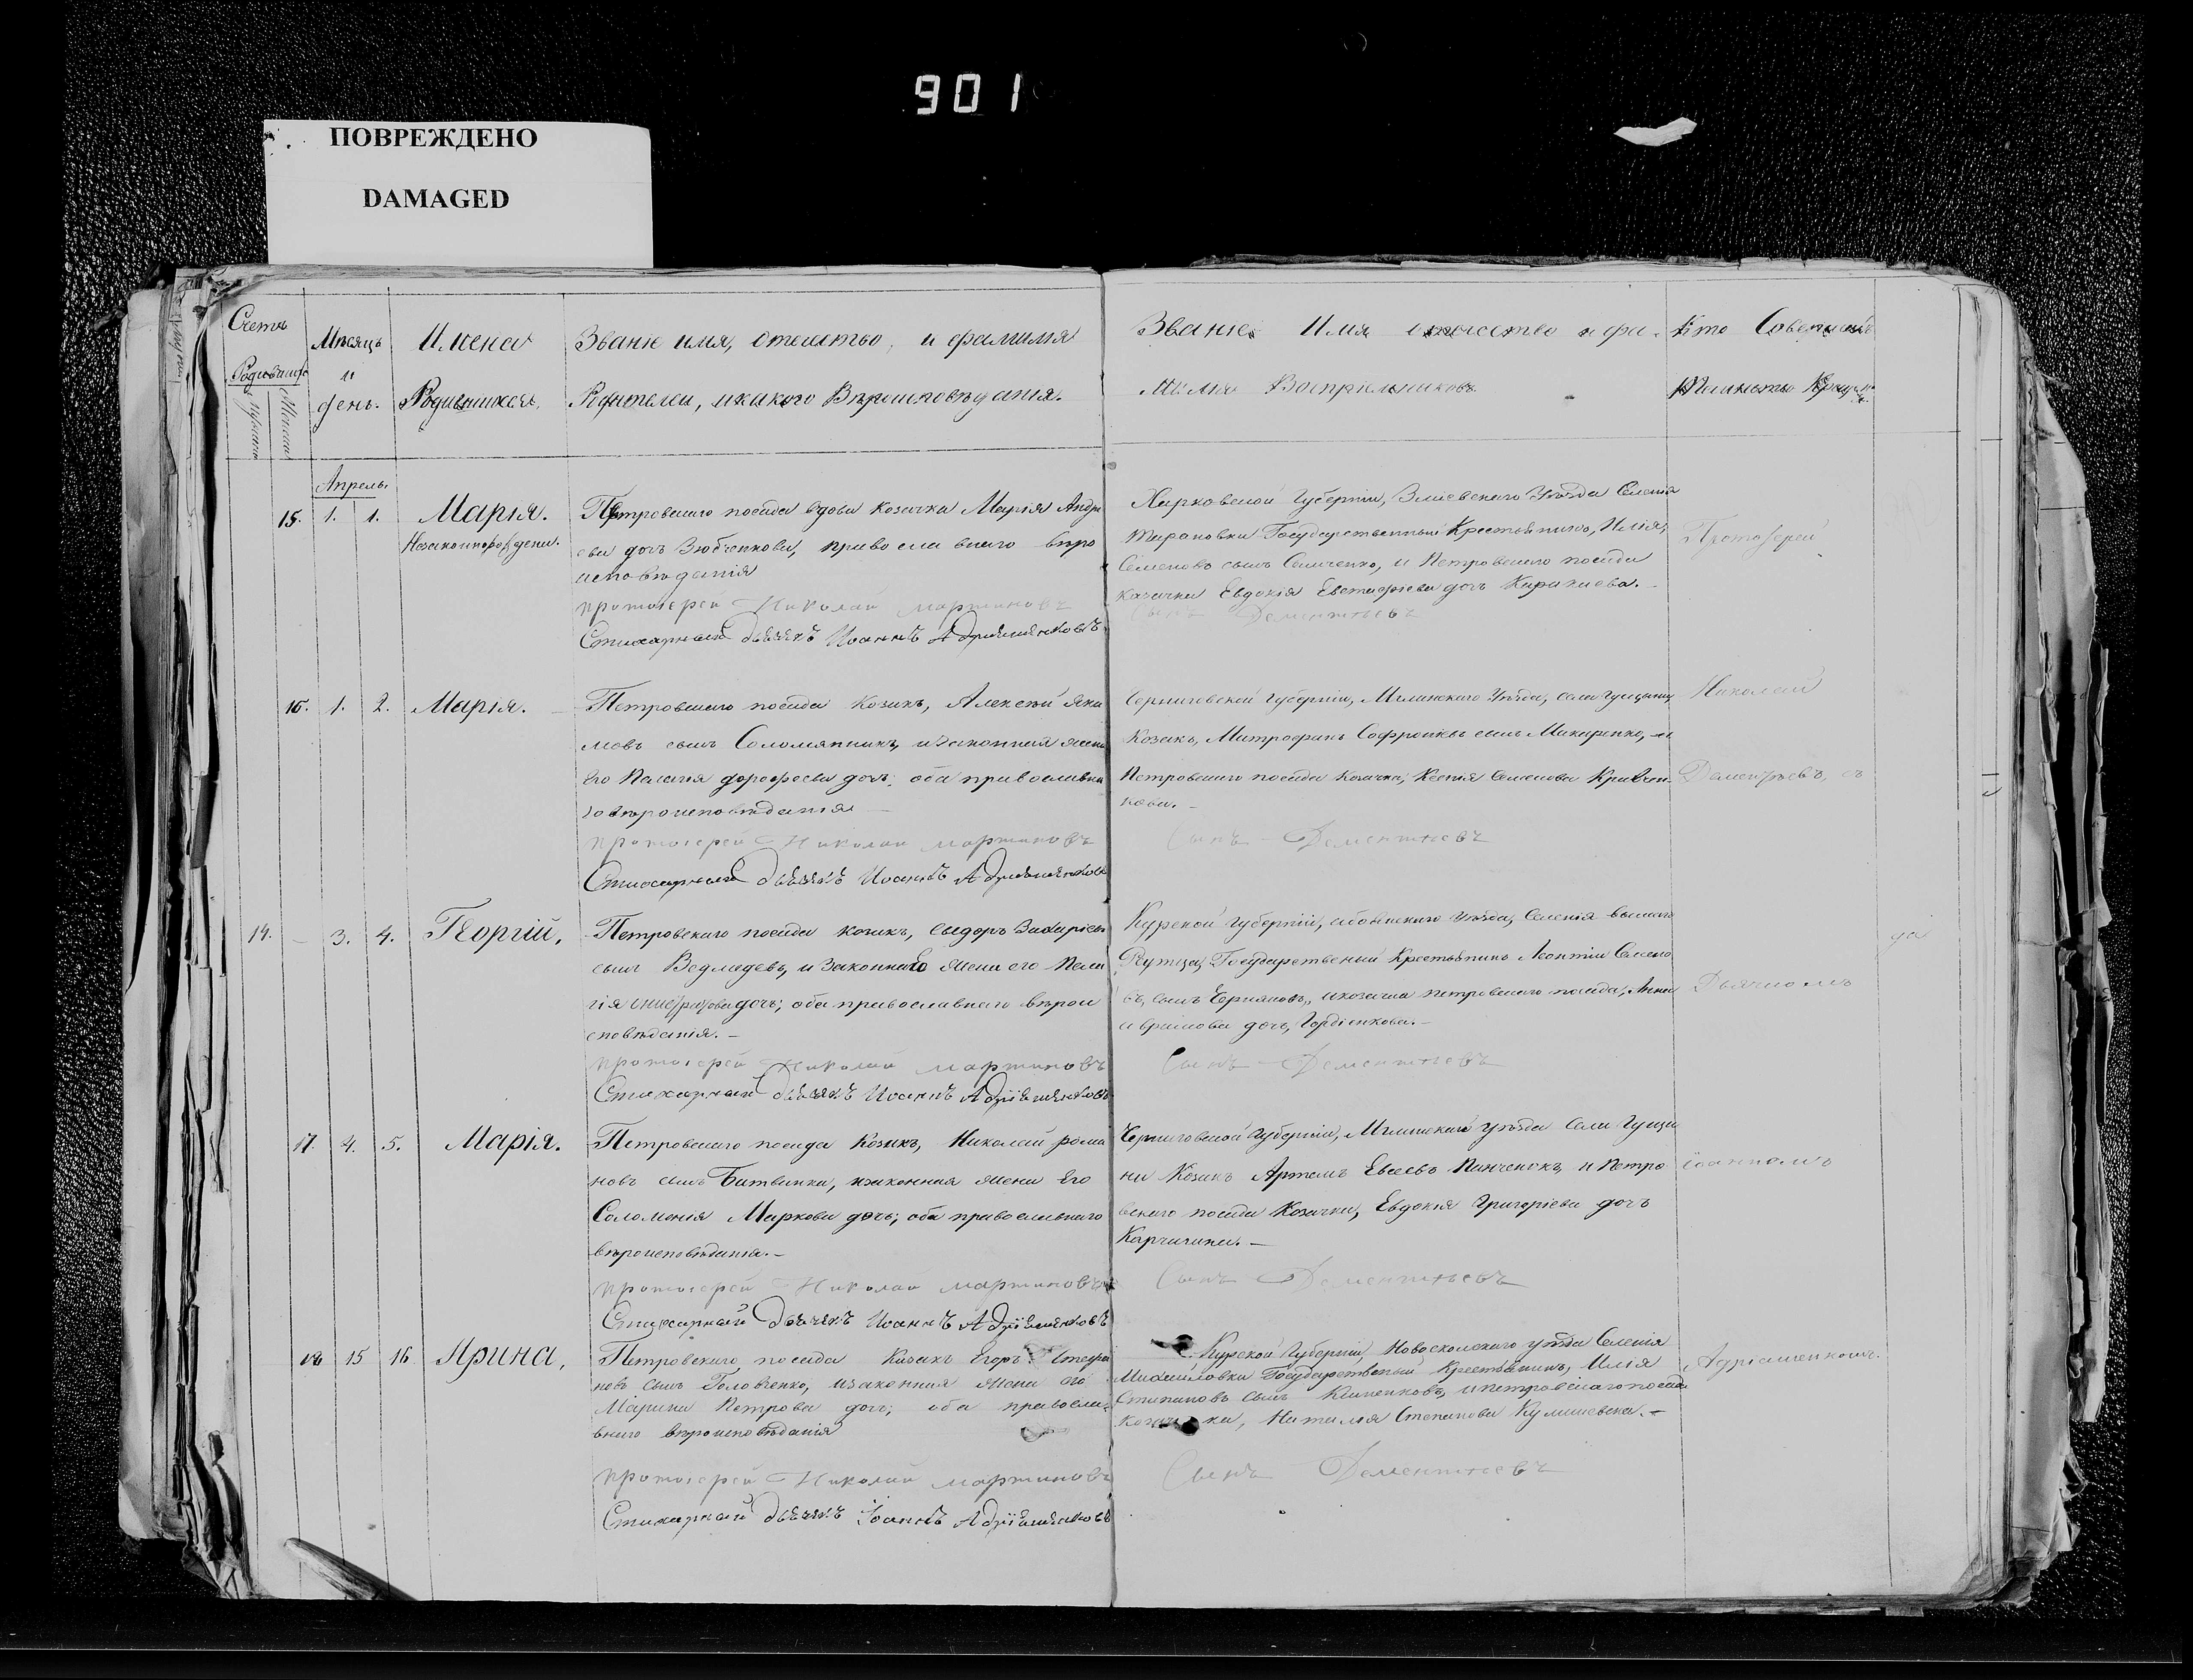 901
ПОВРЕЖДЕНО
DAMAGED
Счетъ
Мѣсяцъ
и
день.
Имена
Родившихся.
Званіе имя, отечество, и фамилія
Родителей, и какого Вѣроисповѣданія.
Званіе Имя отечество и фа-
милія Воспріемниковъ
Кто Совершалъ
Таинство
Апрель.
15. 1. 1. Марія.
Незаконнорожденн.
Петровскаго посада вдова козачка Марія Андре
ева дочь Зюбченкова, православнаго вѣро
исповѣданія
протоіерей Николай Мартиновъ
Стихарный дьячекъ Иоаннъ Адріяшенковъ
Харковской Губерніи, Зміевскаго Уѣзда Селенія
Тарановки Государственный Крестьянинъ, Илія,
Семеновъ сынъ Семченко, и Петровскаго посада
казачка Евдокія Евстафіева дочь
Сынъ Дементьевъ
Протоіерей
16. 1. 2. Марія.
Петровскаго посада козакъ, Алексѣй Яки
мовъ сынъ Соломянникъ, и законная жена
его Пелагія дорофеева дочь; оба православна
го вѣроисповѣданія
протоіерей Николай Мартиновъ
Стихарный дьячекъ Иоаннъ Адріяшенковъ
Черниговской Губерніи, Мглинскаго Уѣзда, села Гущины
Козакъ, Митрофанъ Софроновъ сынъ Макаренко, и
Петровскаго посада козачка, Ксенія Семенова Кривчен-
кова.
Сынъ Дементьевъ
Николай
Дементьевъ, съ
14. - 3. 4. Георгій,
Петровскаго посада козакъ, Сидоръ Захаріевъ
сынъ Ведмедевъ, и Законная жена его Пела
гія дочь; оба православнаго вѣрои
сповѣданія. -
протоіерей Николай Мартиновъ
Стихарный дьячекъ Иоаннъ Адріяшенковъ
Курской Губерніи, обоянскаго уѣзда, Селенія вышняго
Рутца, Государственый Крестьянинъ Леонтій Семено
въ, сынъ Черняховъ, и козачка петровскаго посада, Анна
аврамова дочь, Гордіенкова. -
Сынъ Дементьевъ
Дьячкомъ
17. 4. 5. Марія.
Петровскаго посада Козакъ, Николай рома
новъ сынъ Батвинка, и законная жена Его
Соломонія Маркова дочь; оба православнаго
вѣроисповѣданія. -
протоіерей Николай Мартиновъ
Стихарный дьячекъ Иоаннъ Адріяшенковъ
Черниговской Губерніи, Мглинскаго уѣзда Села Гущи
ни Козакъ Артемъ Евсеевъ Панченокъ, и Петро
вскаго посада Козачка, Евдокія Григоріева дочь
Карчагина. -
Сынъ Дементьевъ
іоанномъ
18 15 16 Ярина,
Петровскаго посада Козакъ Егоръ Стефа
новъ сынъ Головченко, и законная жена его
Марина Петрова дочь; оба правосла-
внаго вѣроисповѣданія
протоіерей Николай Мартиновъ
Стихарный дьячекъ Іоаннъ Адріяшенковъ
Курской Губерніи Новооскольскаго уѣзда Селенія
Михайловки Государственый Крестьянинъ, Илія
Степановъ сынъ Клименковъ, и петровскаго посада
Козачка, Наталія Степанова
Сынъ Дементьевъ
Адріашенкомъ.